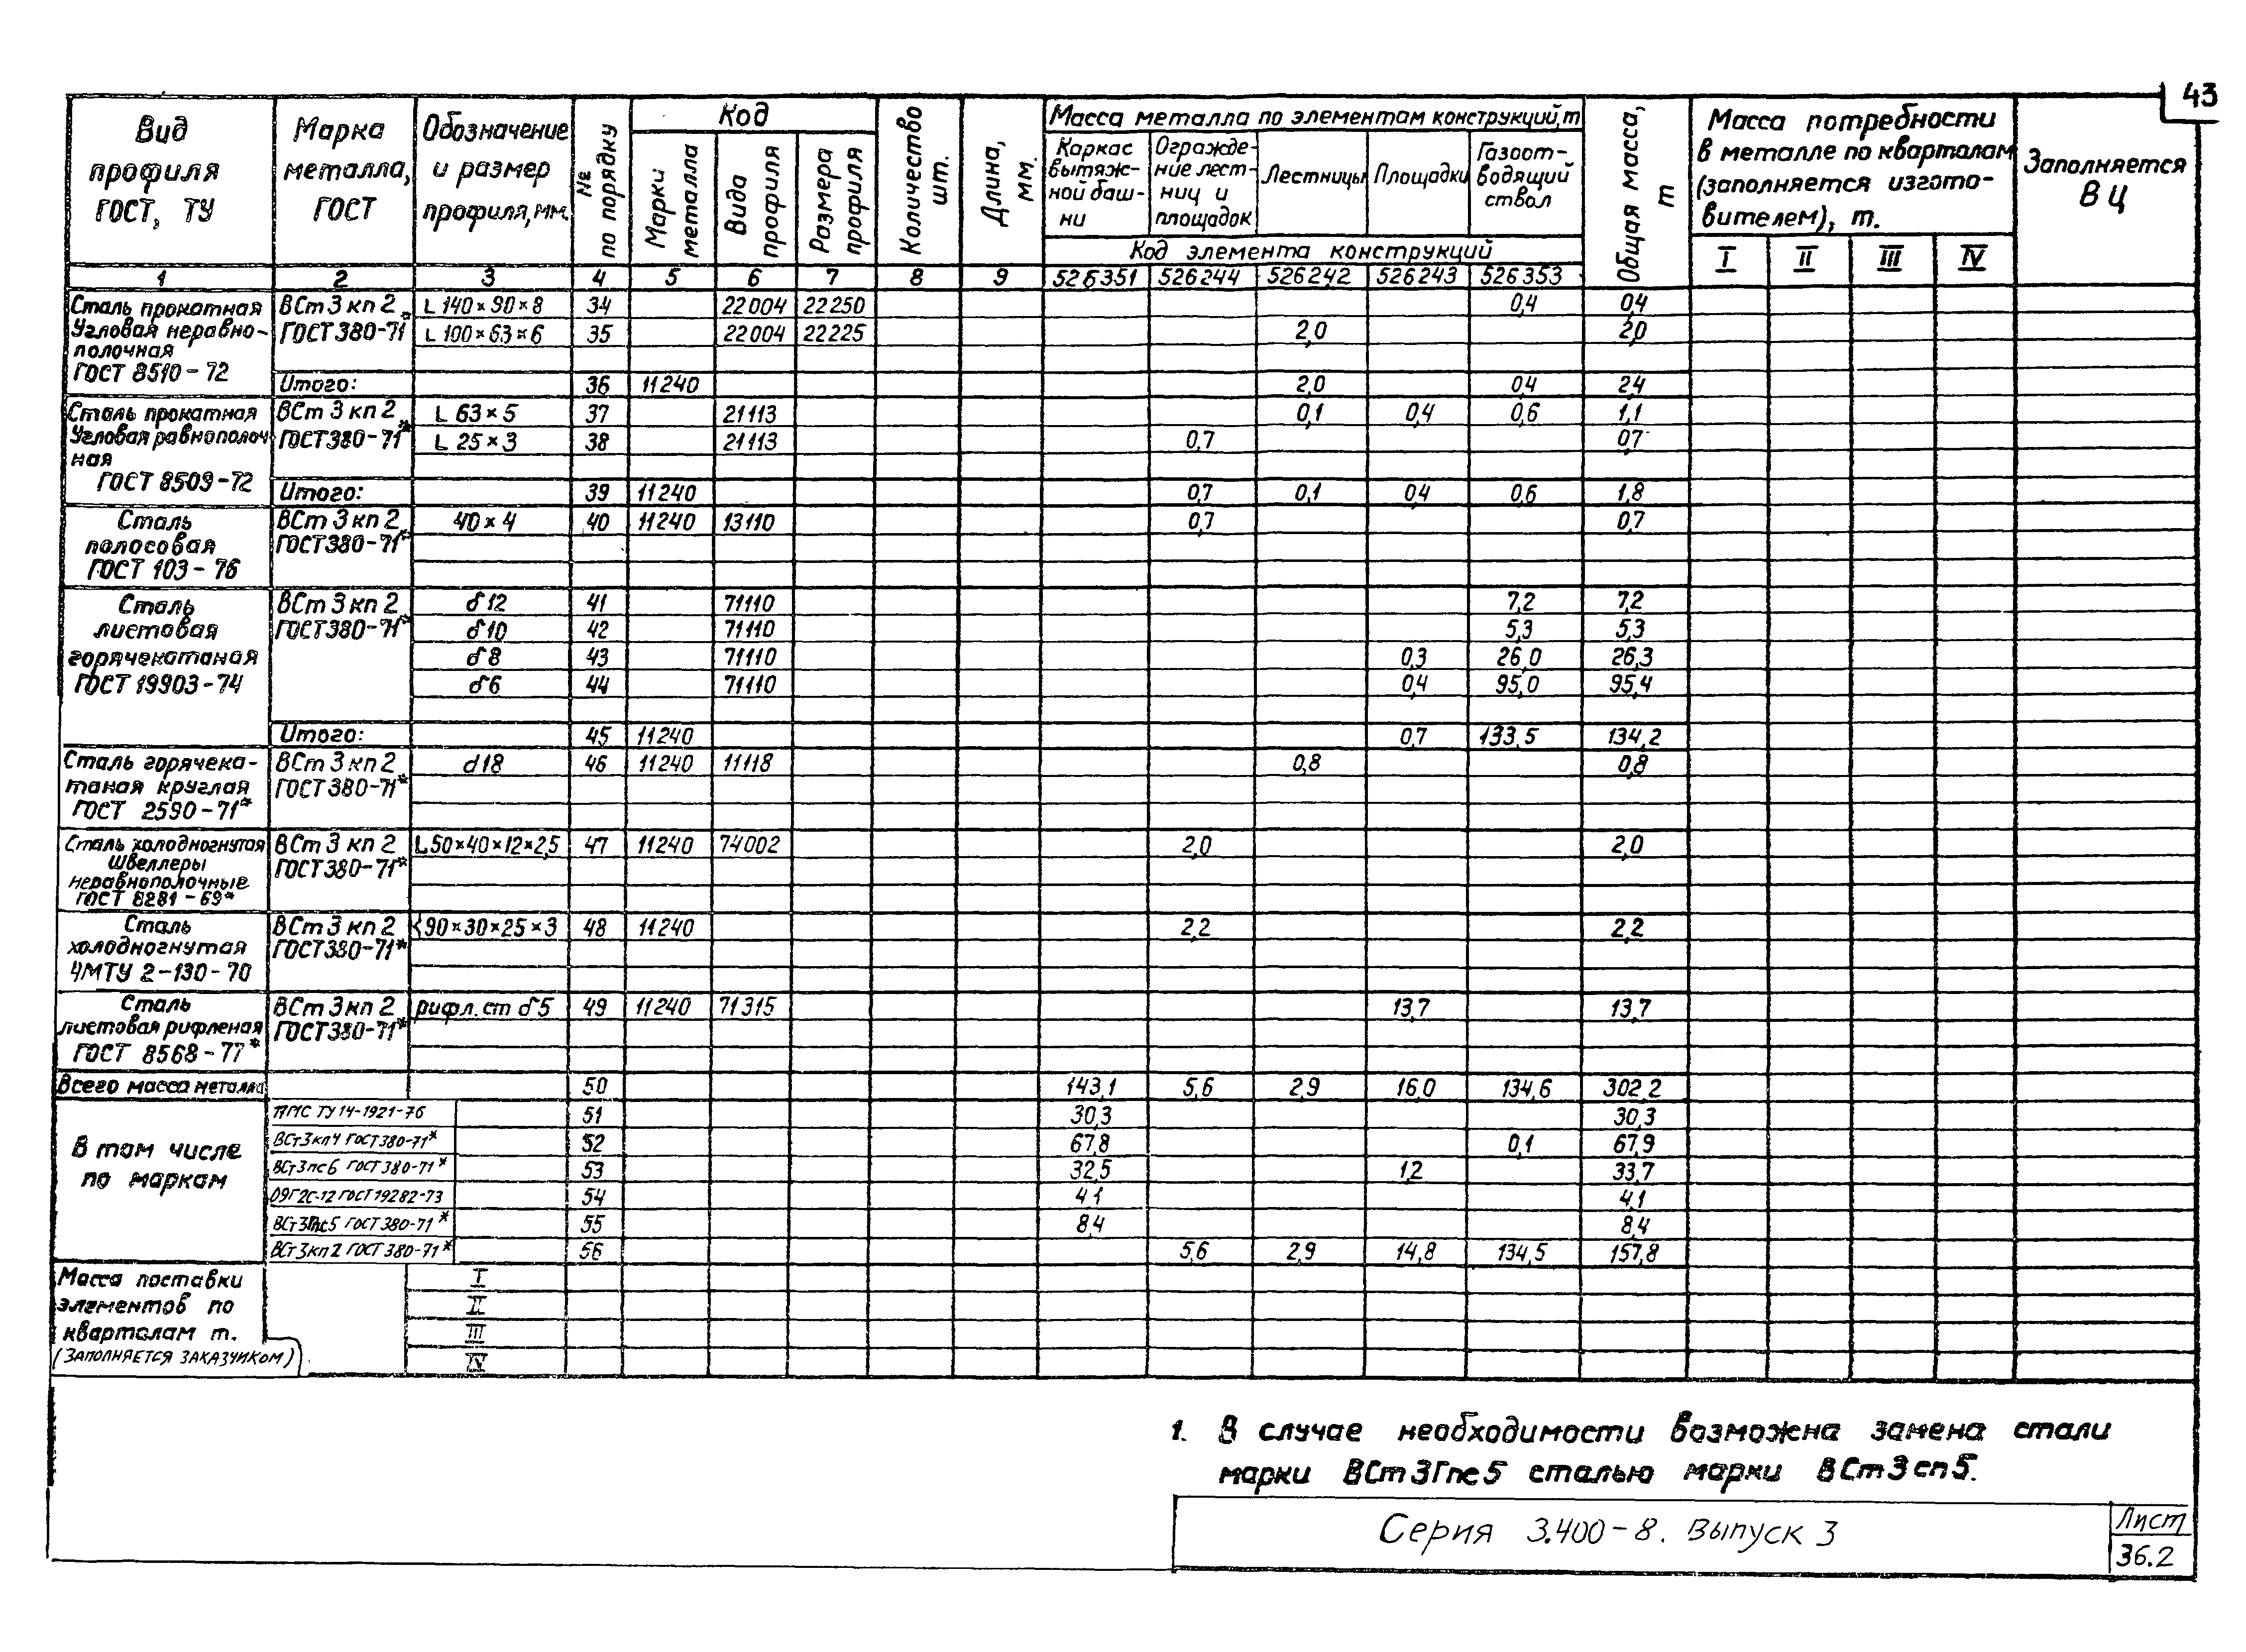 43
Вид профиля ГОСТ, ТУ
Марка металла, ГОСТ
Обозначение и размер профиля, мм.
№ по порядку
Код
Марки металла
Вида профиля
Размера профиля
Количество шт.
Длина, мм.
Масса металла по элементам конструкций, т
Каркас вытяж-ной баш-ни
Огражде-ние лест-ниц и площадок
Лестницы
Площадки
Газоот-водящий ствол
Код элемента конструкций
Общая масса, т
Масса потребности в металле по кварталам (заполняется изгото-вителем), т.
I II III IV
Заполняется ВЦ
1 2 3 4 5 6 7 8 9 526351 526244 526242 526243 526353
Сталь прокатная Угловая неравно-полочная ГОСТ 8510-72
ВСт 3 кп 2 ГОСТ 380-71*
L 140×90×8 34 22004 22250 0,4 0,4
L 100×63×6 35 22004 22225 2,0 2,0
Итого: 36 11240 2,0 0,4 2,4
Сталь прокатная Угловая равнополоч ная ГОСТ 8509-72
ВСт 3 кп 2 ГОСТ 380-71*
L 63×5 37 21113 0,1 0,4 0,6 1,1
L 25×3 38 21113 0,7 0,7
Итого: 39 11240 0,7 0,1 0,4 0,6 1,8
Сталь полосовая ГОСТ 103-76
ВСт 3 кп 2 ГОСТ 380-71*
40×4 40 11240 13110 0,7 0,7
Сталь листовая горячекатаная ГОСТ 19903-74
ВСт 3 кп 2 ГОСТ 380-71*
δ12 41 71110 7,2 7,2
δ10 42 71110 5,3 5,3
δ8 43 71110 0,3 26,0 26,3
δ6 44 71110 0,4 95,0 95,4
Итого: 45 11240 0,7 133,5 134,2
Сталь горячека-таная круглая ГОСТ 2590-71*
ВСт 3 кп 2 ГОСТ 380-71*
d18 46 11240 11118 0,8 0,8
Сталь холодногнутая швеллеры неравнополочные ГОСТ 8281-69*
ВСт 3 кп 2 ГОСТ 380-71*
L50×40×12×2,5 47 11240 74002 2,0 2,0
Сталь холодногнутая ЧМТУ 2-130-70
ВСт 3 кп 2 ГОСТ 380-71*
90×30×25×3 48 11240 2,2 2,2
Сталь листовая рифленая ГОСТ 8568-77*
ВСт 3 кп 2 ГОСТ 380-71*
рифл. ст δ5 49 11240 71315 13,7 13,7
Всего масса металла 50 143,1 5,6 2,9 16,0 134,6 302,2
В том числе по маркам
ТУ 14-1921-76 51 30,3 30,3
ВСт3кп4 ГОСТ 380-71* 52 67,8 0,1 67,9
ВСт3пс6 ГОСТ 380-71* 53 32,5 1,2 33,7
09Г2С-12 ГОСТ 19282-73 54 4,1 4,1
ВСт3Гпс5 ГОСТ 380-71* 55 8,4 8,4
ВСт3кп2 ГОСТ 380-71* 56 5,6 2,9 14,8 134,5 157,8
Масса поставки элементов по кварталам т. (ЗАПОЛНЯЕТСЯ ЗАКАЗЧИКОМ)
I
II
III
IV
1. В случае необходимости возможна замена стали
марки ВСт3Гпс5 сталью марки ВСт3сп5.
Серия 3.400-8. Выпуск 3
Лист
36.2